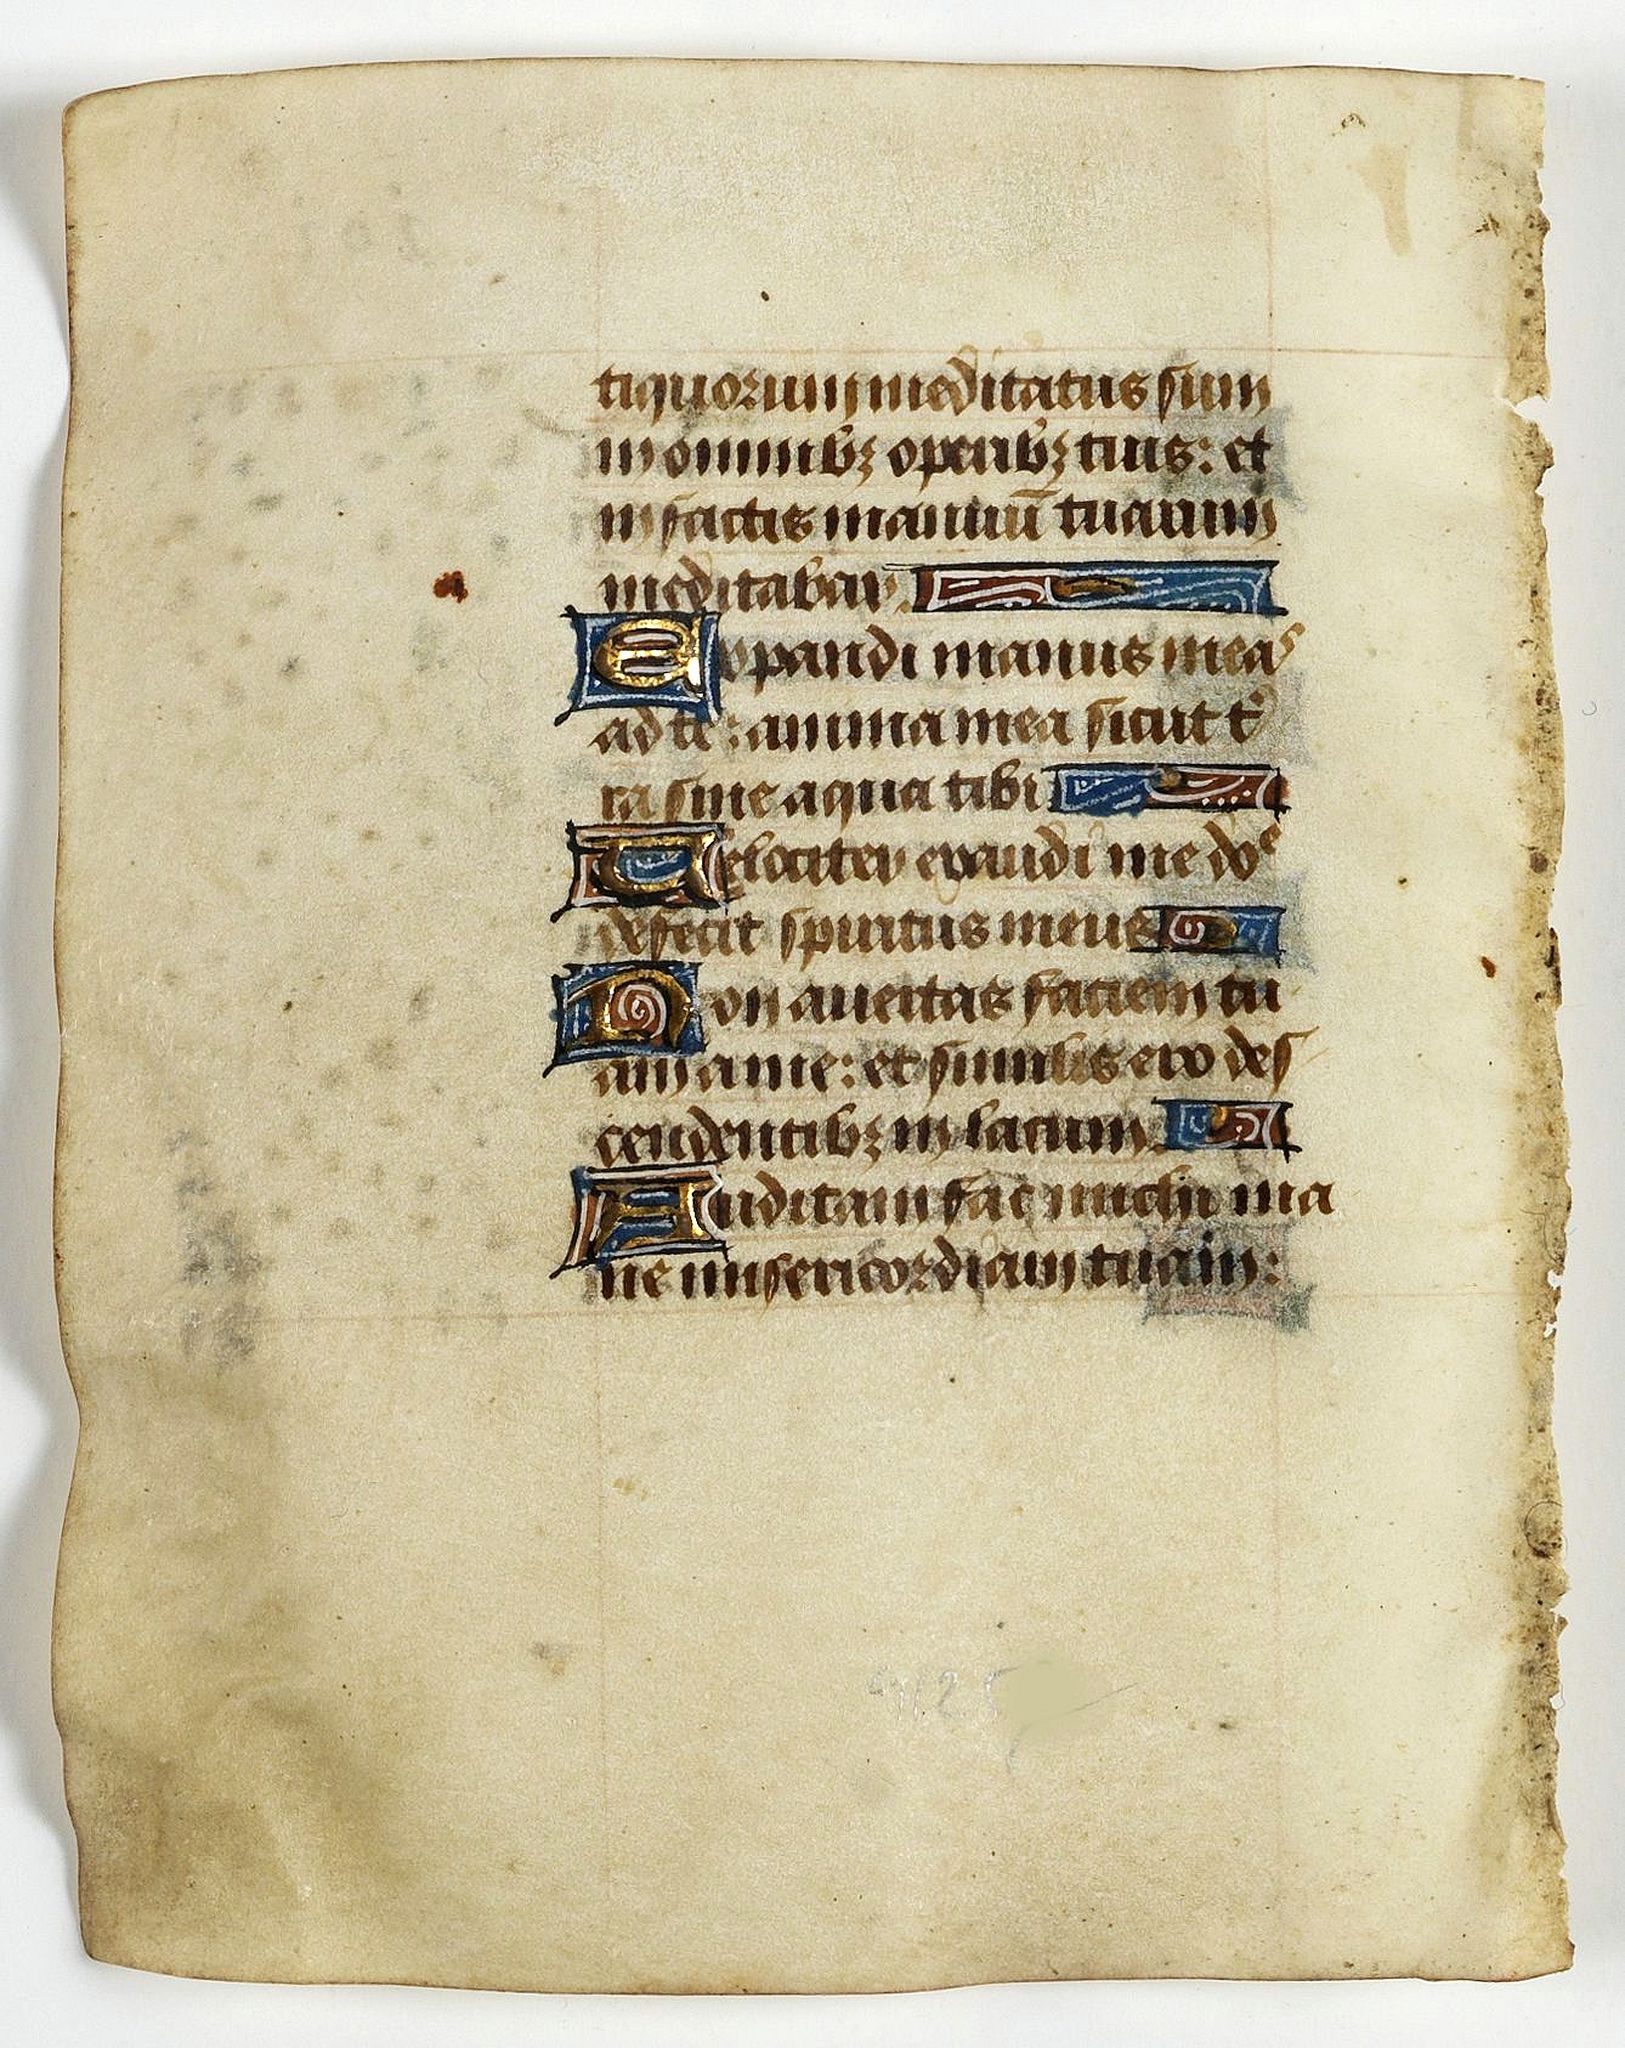 tiquorum meditatus sum
in omnibꝫ operibꝫ tuis: et
in factis manuū tuarum
meditabar.
Expandi manus meas
ad te: anima mea sicut t͛
ra sine aqua tibi
Uelociter exaudi me doᵉ
defecit spiritus meus
Non auertas faciem tu
am a me: et similis ero des
cendentibꝫ in lacum.
Auditam fac michi ma
ne misericordiam tuam: